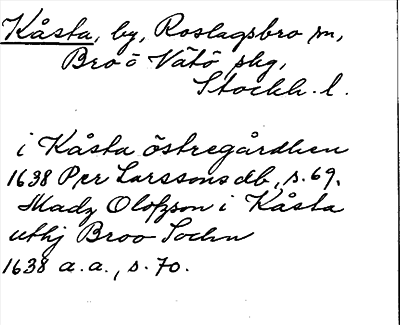 Kåsta, by, Roslagsbro sn,
Bro o Vätö skg,
Stockh. l.
i Kåsta östregårdhen
1638 Per Larssons db, s. 69.
Madz Olofzson i Kåsta
uthj Broo Sochn
1638 a. a., s. 70.